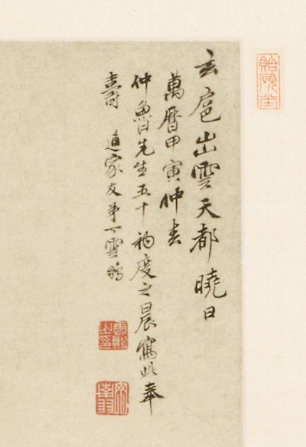 玄扈出雲天都曉日
萬曆甲寅仲春
仲魯先生五十初度之晨寫此奉
壽 通家友弟丁雲鵬